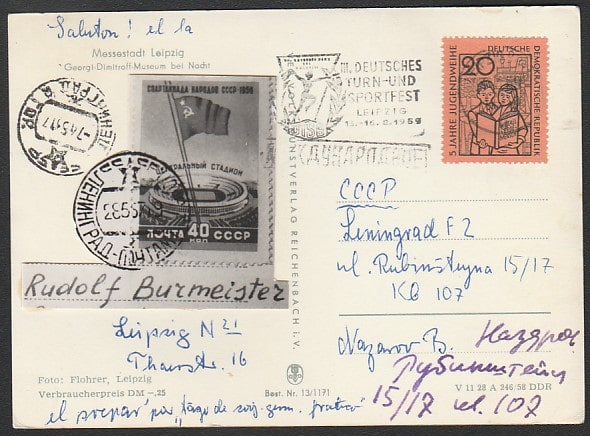 Saluton! el la
Messestadt Leipzig
Georgi-Dimitroff-Museum bei Nacht
ЛЕНИНГРАД
СССР
СПАРТАКИАДА НАРОДОВ СССР - 1956
ЦЕНТРАЛЬНЫЙ СТАДИОН
ПОЧТА 40 СССР
КОП
ЛЕНИНГРАД-ПОЧТАМТ
Rudolf Burmeister
Leipzig N 21
Thaerstr. 16
Foto: Flohrer, Leipzig
Verbraucherpreis DM -,25
Best. Nr. 13/1171
KUNSTVERLAG REICHENBACH i. V.
III. DEUTSCHES
TURN- UND
SPORTFEST
LEIPZIG
13.-16. 8. 1959
МЕЖДУНАРОДНОЕ
20
DEUTSCHE
DEMOKRATISCHE REPUBLIK
5 JAHRE JUGENDWEIHE
СССР
Leningrad F 2
ul. Rubinŝteyna 15/17
KB 107
Nazarov B.
Рубинштейна
15/17 кв. 107
V 11 28 A 246/58 DDR